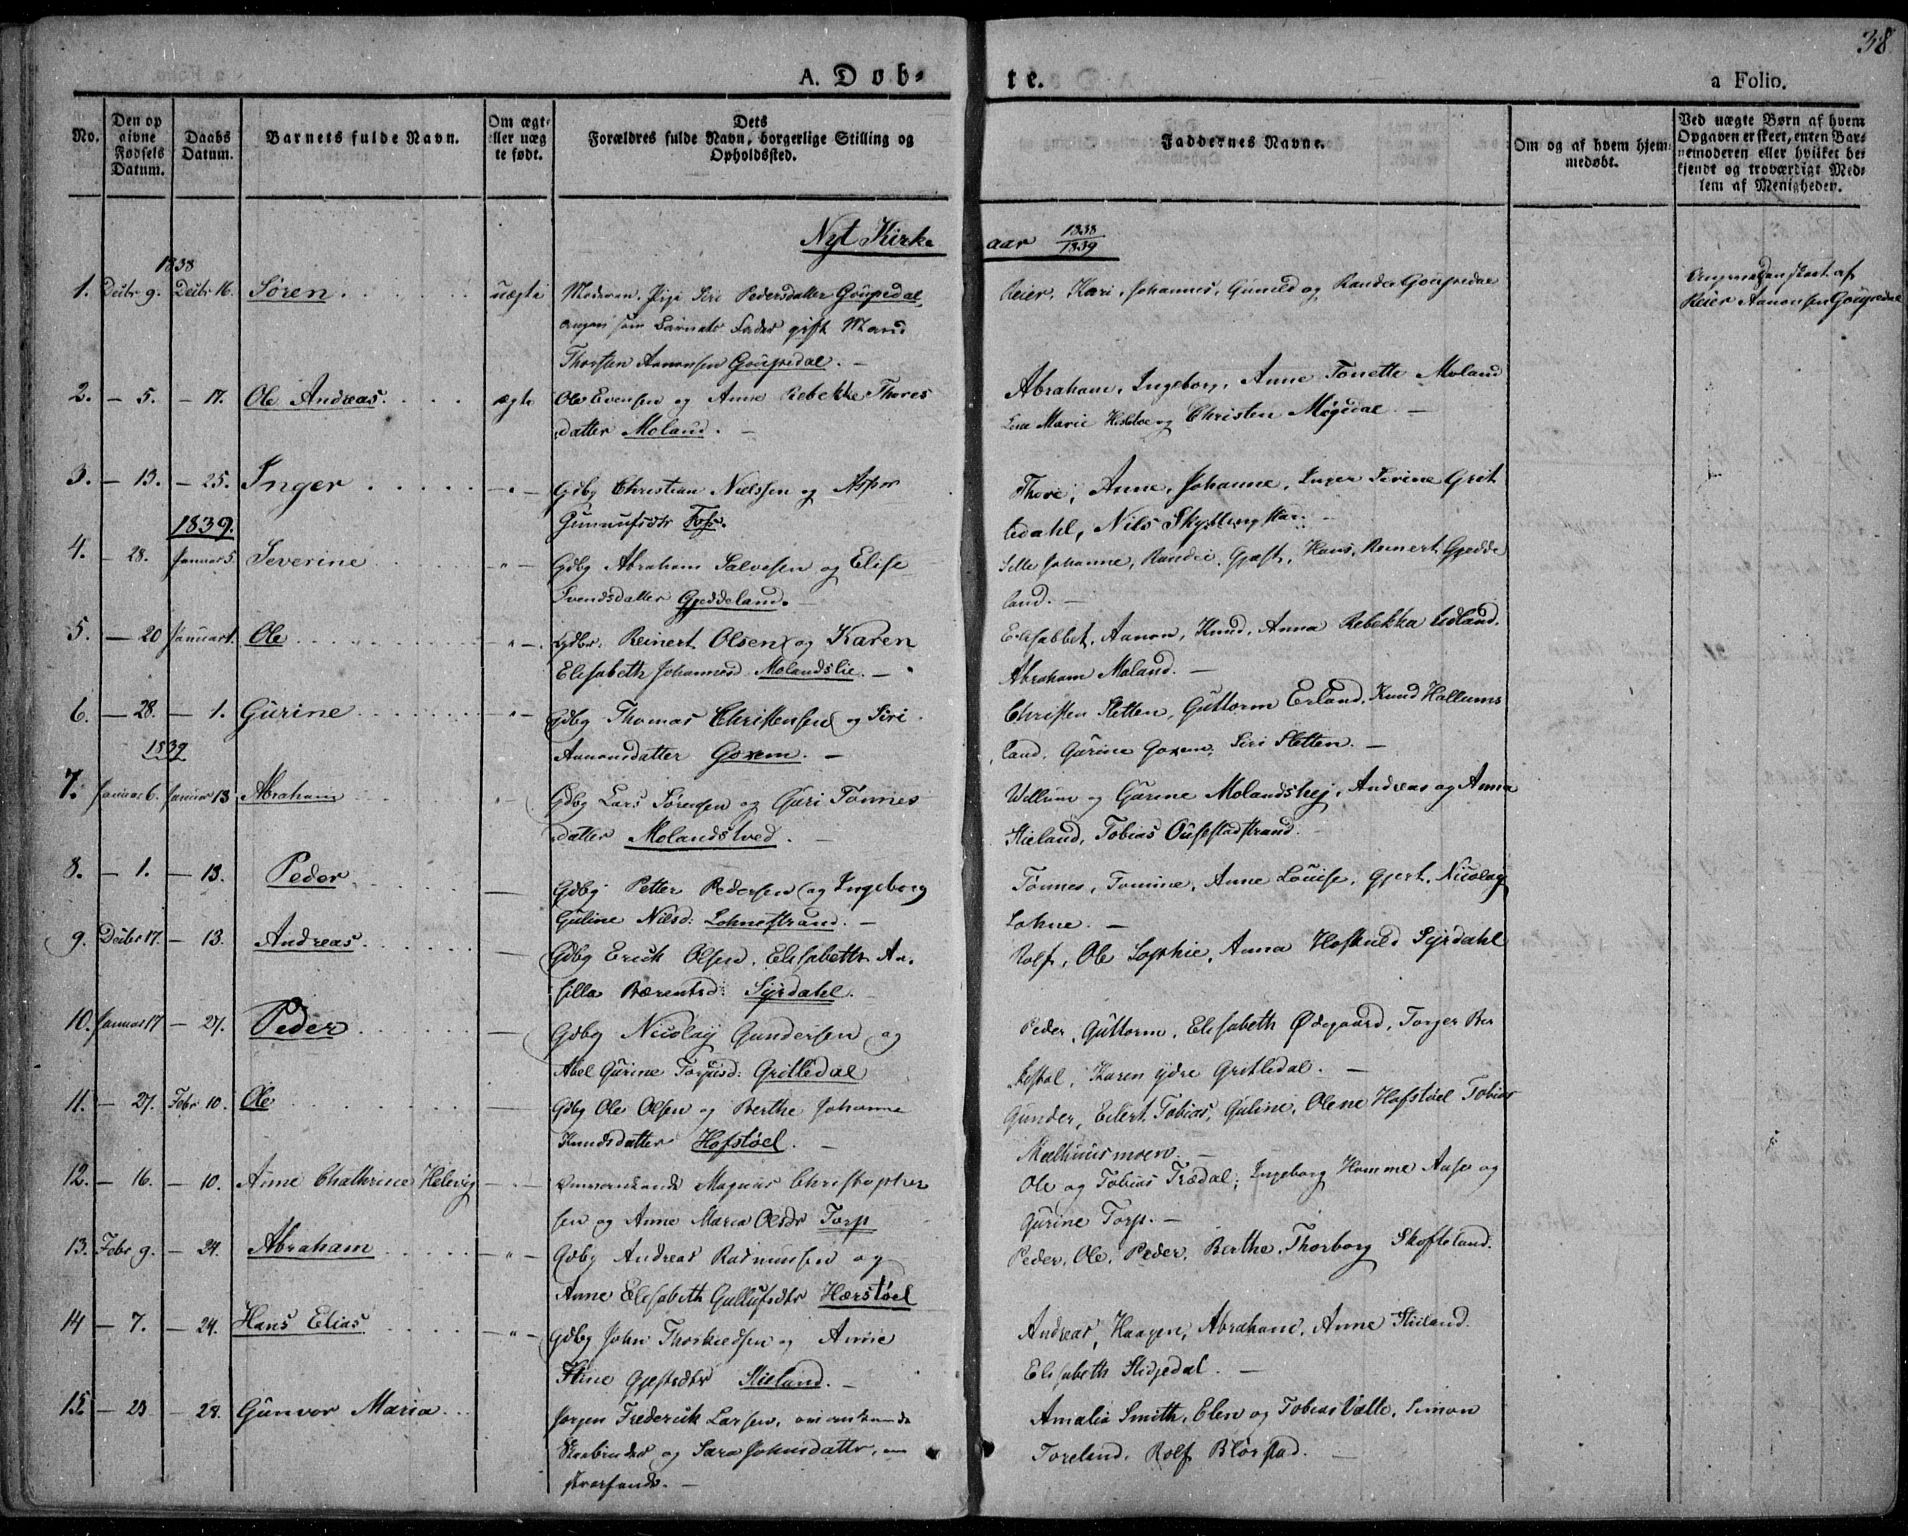 38
A. Døb-
te.
a Folio.
No.
Den op
givne
Fødsels
Datum.
Daabs
Datum.
Barnets fulde Navn.
Om ægt-
eller uæg
te født.
Dets
Forældres fulde Navn, borgerlige Stilling og
Opholdssted.
Faddernes Navne.
Om og af hvem hjem-
medøbt.
Ved uægte Børn af hvem
Opgaven er skeet, enten Bar-
nemoderen eller hvilket be-
kjendt og troværdigt Med-
lem af Menigheden.
Nyt Kirke
aar 1838/1839
1838
1. Decbr 9. Decbr 16. Søren. uægte Moderen Pige Siri Pedersdatter
som Barnets Fader gift Mand
Thorsten Aanonsen
Reier, Kari, Johannes, Gunild og Rander
af
Reier Aanonsen
2. – 5. – 17. Ole Andreas. ægte Ole Evensen og Anne Rebekke Thores
datter Moland. –
Abraham, Ingeborg, Anne Tonette Moland
Marie og Christen
3. – 13. – 25. Inger Gdbg Christian Nielsen og Aspor
Gunnufsdtr Foss.
Thore, Anne, Johanne, Inger Serine Grit
ledahl, Nils
1839.
4. – 28. Januar 5. Severine Gdbg Abraham Salvesen og Elise
Svendsdatter Gjeddeland.
Johanne, Hans, Reinert Gjedde
land. –
5. – 20 Januar 1. Ole Reinert Olsen og Karen
Elisabeth Johannesd. Molandslie. –
Elisabbet, Aanon, Knud, Anna Rebekka Udland.
Abraham Moland. –
6. – 28. – 1. Gurine Gdbg Thomas Christensen og Siri
Aanonsdatter Goxem. –
Christen Sletten, Guttorm Erland, Knud Hallums
land, Gurine Goxem, Siri Sletten. –
1839
7. Januar 6. Januar 13 Abraham Gdbg Lars Sørensen og Guri Tønnes
datter Molandstved. –
Willum og Gurine Molandshej, Andreas og Anna
Stieland, Tobias Ousestadstrand.
8. – 1. – 13. Peder Gdbg Petter Pedersen og Ingeborg
Guline Nilsd: Lohnestrand. –
Tønnes, Tomine, Anne Louise, Gjert, Nicolay
Lohne. –
9. Decbr 17. – 13. Andreas. Gdbg Erick Olsen, Elisabeth A
silla Bærentsd: Syrdahl.
Rolf, Ole Sophie, Anna Hoskuld Syrdahl
10. Januar 17 – 27. Peder Gdbg Nicolay Gundersen og
Abel Gurine Torjusd: Gritledal
Peder, Guttorm, Elisabeth Ødegaard, Torger
Karen Ydre Gritledal. –
11. – 27. Febr 10. Ole Gdbg Ole Olsen og Berthe Johanne
Knudsdatter Hofstøel. –
Gunder, Eilert, Tobias, Guline, Olene Hofstøel Tobias
Mælhuusmoen. –
12. – 16. – 10. Anne Chathrine Helevig Magnus Christopher
sen og Anne Maria Olsdr Torp
Ole og Tobias Trædal, Ingeborg Homme Aase og
Gurine Torp. –
13. Febr 9. – 24. Abraham Gdbg Andreas Rasmussen og
Anne Elisabeth Gullufsdtr Hærstøel
Peder, Ole, Peder, Berthe, Thorborg Skofteland.
14 – 7. – 24. Hans Elias Gdbg John Thorkildsen og Anne
Stine Gjestsdtr Stieland. –
Andreas, Haagen, Abraham, Anne Stieland.
Elisabeth Stidjedal. –
15. – 23 – 28. Gunvor Maria Jørgen Frederick Larsen, omvankende
og Sara Johnsdattr,
Amalia Smith, Elen og Tobias Valle, Simon
Foreland. Rolf